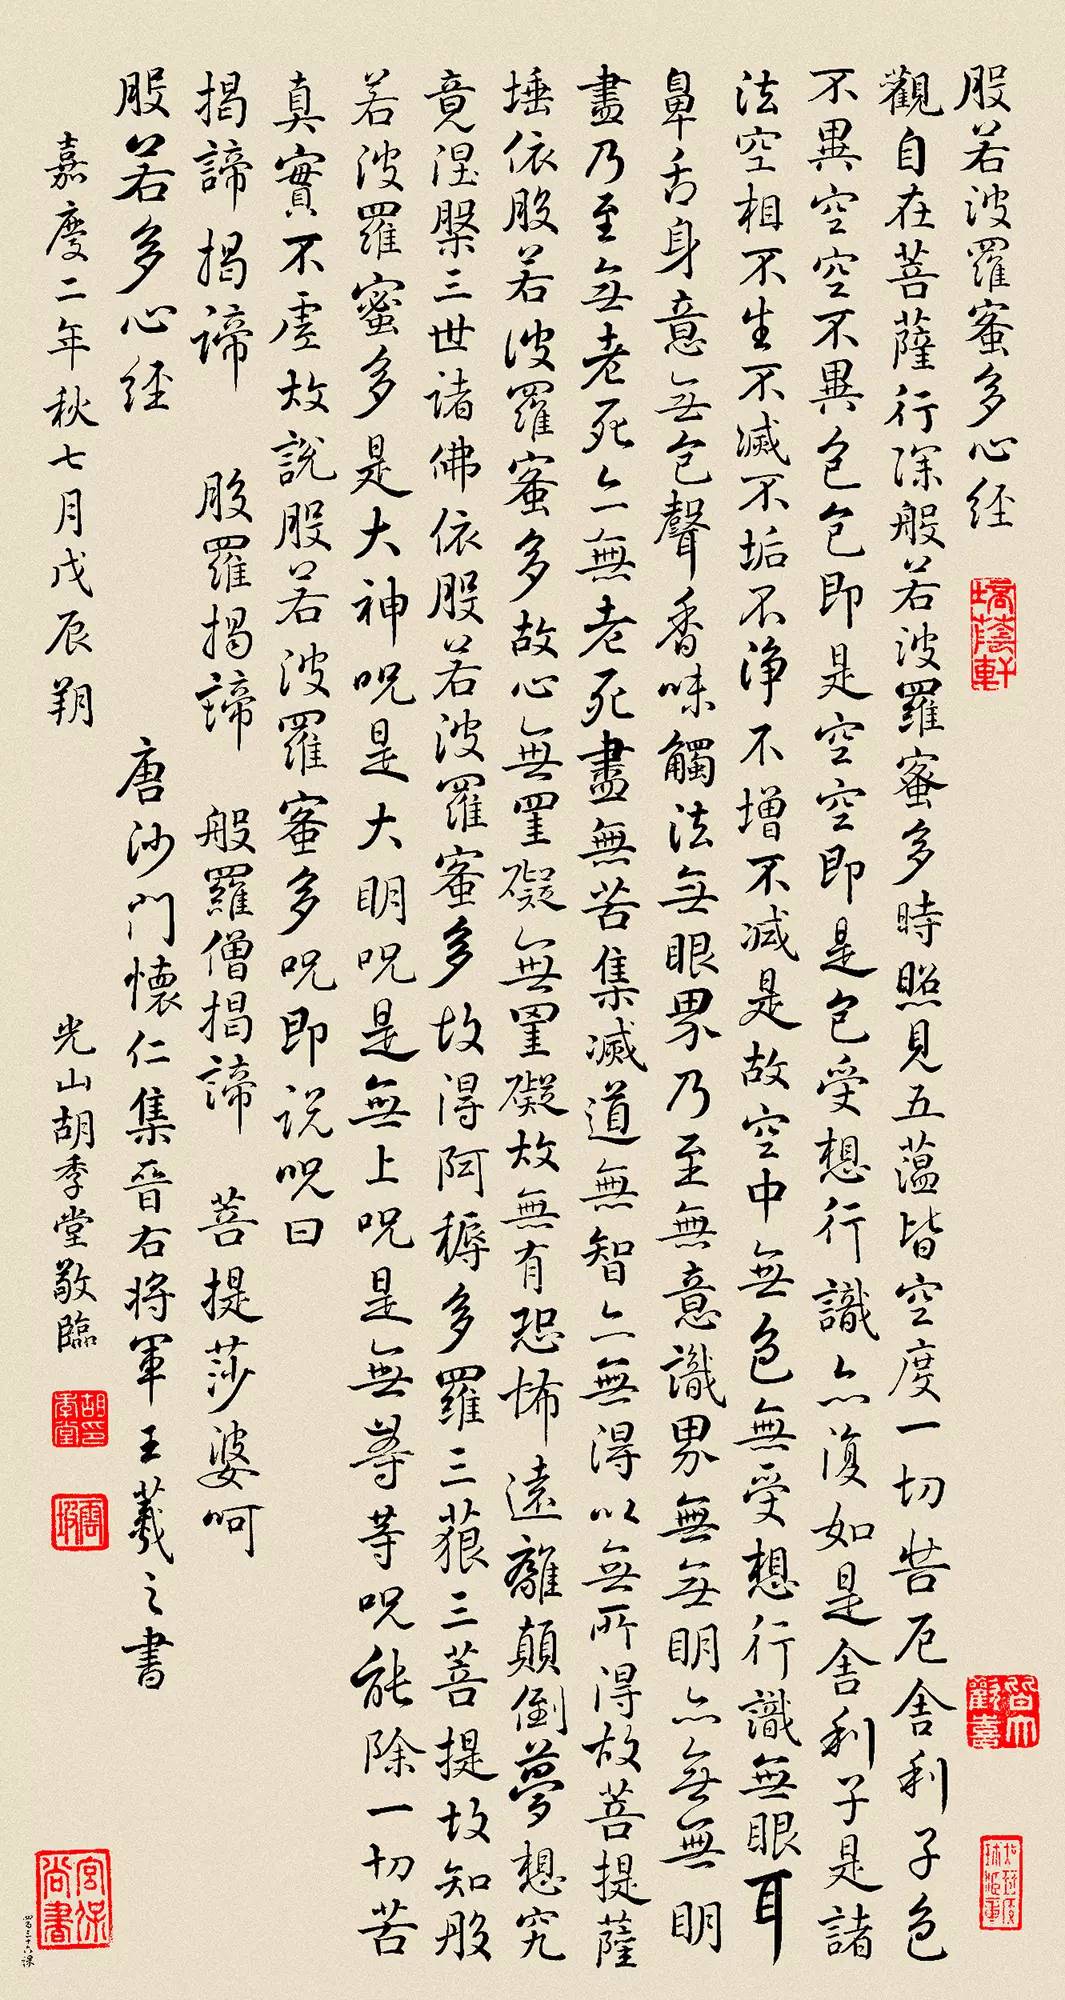 般若波羅蜜多心経
培蔭軒
觀自在菩薩行深般若波羅蜜多時照見五蘊皆空度一切苦厄舍利子色
不異空空不異色色即是空空即是色受想行識亦復如是舍利子是諸
法空相不生不滅不垢不淨不增不減是故空中無色無受想行識無眼耳
鼻舌身意無色聲香味觸法無眼界乃至無意識界無無明亦無無明
盡乃至無老死亦無老死盡無苦集滅道無智亦無得以無所得故菩提薩
埵依般若波羅蜜多故心無罣礙無罣礙故無有恐怖遠離顛倒夢想究
竟涅槃三世諸佛依般若波羅蜜多故得阿耨多羅三藐三菩提故知般
若波羅蜜多是大神呪是大明呪是無上呪是無等等呪能除一切苦
真實不虛故說般若波羅蜜多呪即說呪曰
揭諦揭諦 般羅揭諦 般羅僧揭諦 菩提莎婆呵
般若多心経 唐沙門懷仁集晉右將軍王羲之書
嘉慶二年秋七月戊辰朔 光山胡季堂敬臨
胡季堂印
雲坡
皆大歡喜
宮保尚書